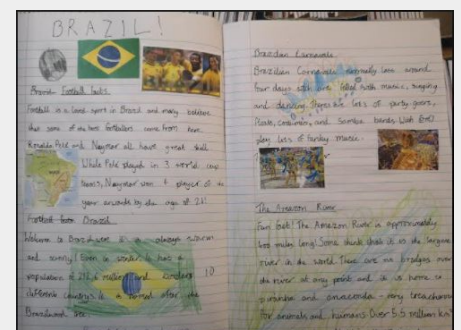 BRAZIL!
Brazil Football facts
Football is a loved sport in Brazil and many believe
that some of the best footballers come from here.
Ronaldo Pelé and Neymar all have great skill.
While Pelé played in 3 world cup
teams, Neymar won 6 player of the
year awards by the age of 21!
Football facts Brazil
Welcome to Brazil were it is always warm
and sunny! Even in winter. It has a
population of million and borders 10
different countries. It is named after the
Brazilwood tree.
Brazilian Carnivals
Brazilian Carnivals normally last around
four days with are filled with music, singing
and dancing. There are lots of party goers,
floats, costumes, and Samba bands. With
play lots of music.
The Amazon River
Fun fact! The Amazon River is approximately
miles long! Some think it is the largest
river in the world. There are no bridges over
the river at any point and it is home to
piranha and anaconda - very treacherous
for animals and humans. Over 5.5 million km²